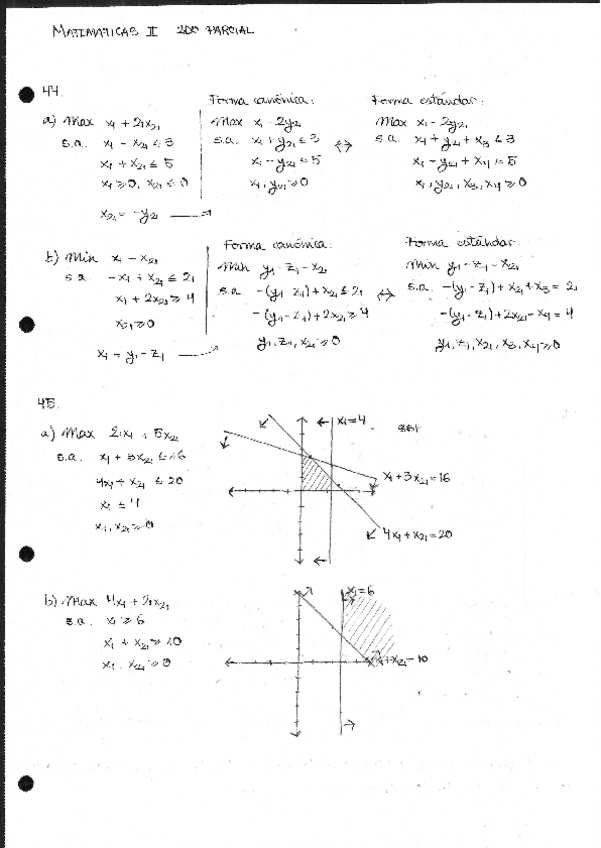 MATEMATICAS II 2DO PARCIAL
44.
a) Max x₁ + 2x₂
s.a. x₁ - x₂ ≤ 3
x₁ + x₂ ≤ 5
x₁ ≥ 0, x₂ ≤ 0
x₂ = -y₂ →
Forma canónica:
Max x₁ - 2y₂
s.a. x₁ + y₂ ≤ 3 ↔
x₁ - y₂ ≤ 5
x₁, y₂ ≥ 0
Forma estándar:
Max x₁ - 2y₂
s.a. x₁ + y₂ + x₃ ≤ 3
x₁ - y₂ + x₄ = 5
x₁, y₂, x₃, x₄ ≥ 0
b) Min x₁ - x₂
s.a. -x₁ + x₂ ≤ 2
x₁ + 2x₂ ≥ 4
x₂ ≥ 0
x₁ = y₁ - z₁ →
Forma canónica:
Min y₁ - z₁ - x₂
s.a. -(y₁ - z₁) + x₂ ≤ 2 ↔
-(y₁ - z₁) + 2x₂ ≥ 4
y₁, z₁, x₂ ≥ 0
Forma estándar
Min y₁ - z₁ - x₂
s.a. -(y₁ - z₁) + x₂ + x₃ = 2
-(y₁ - z₁) + 2x₂ - x₄ = 4
y₁, z₁, x₂, x₃, x₄ ≥ 0
45.
a) Max 2x₁ + 5x₂
s.a.
4x₁ + x₂ ≤ 20
x₁ ≤ 4
x₁, x₂ ≥ 0
x₁ = 4
x₁ + 3x₂ = 16
4x₁ + x₂ = 20
b) Max 4x₁ + 2x₂
s.a. x₁ ≥ 6
x₁ + x₂ ≥ 10
x₁, x₂ ≥ 0
x₁ = 6
x₁ + x₂ = 10